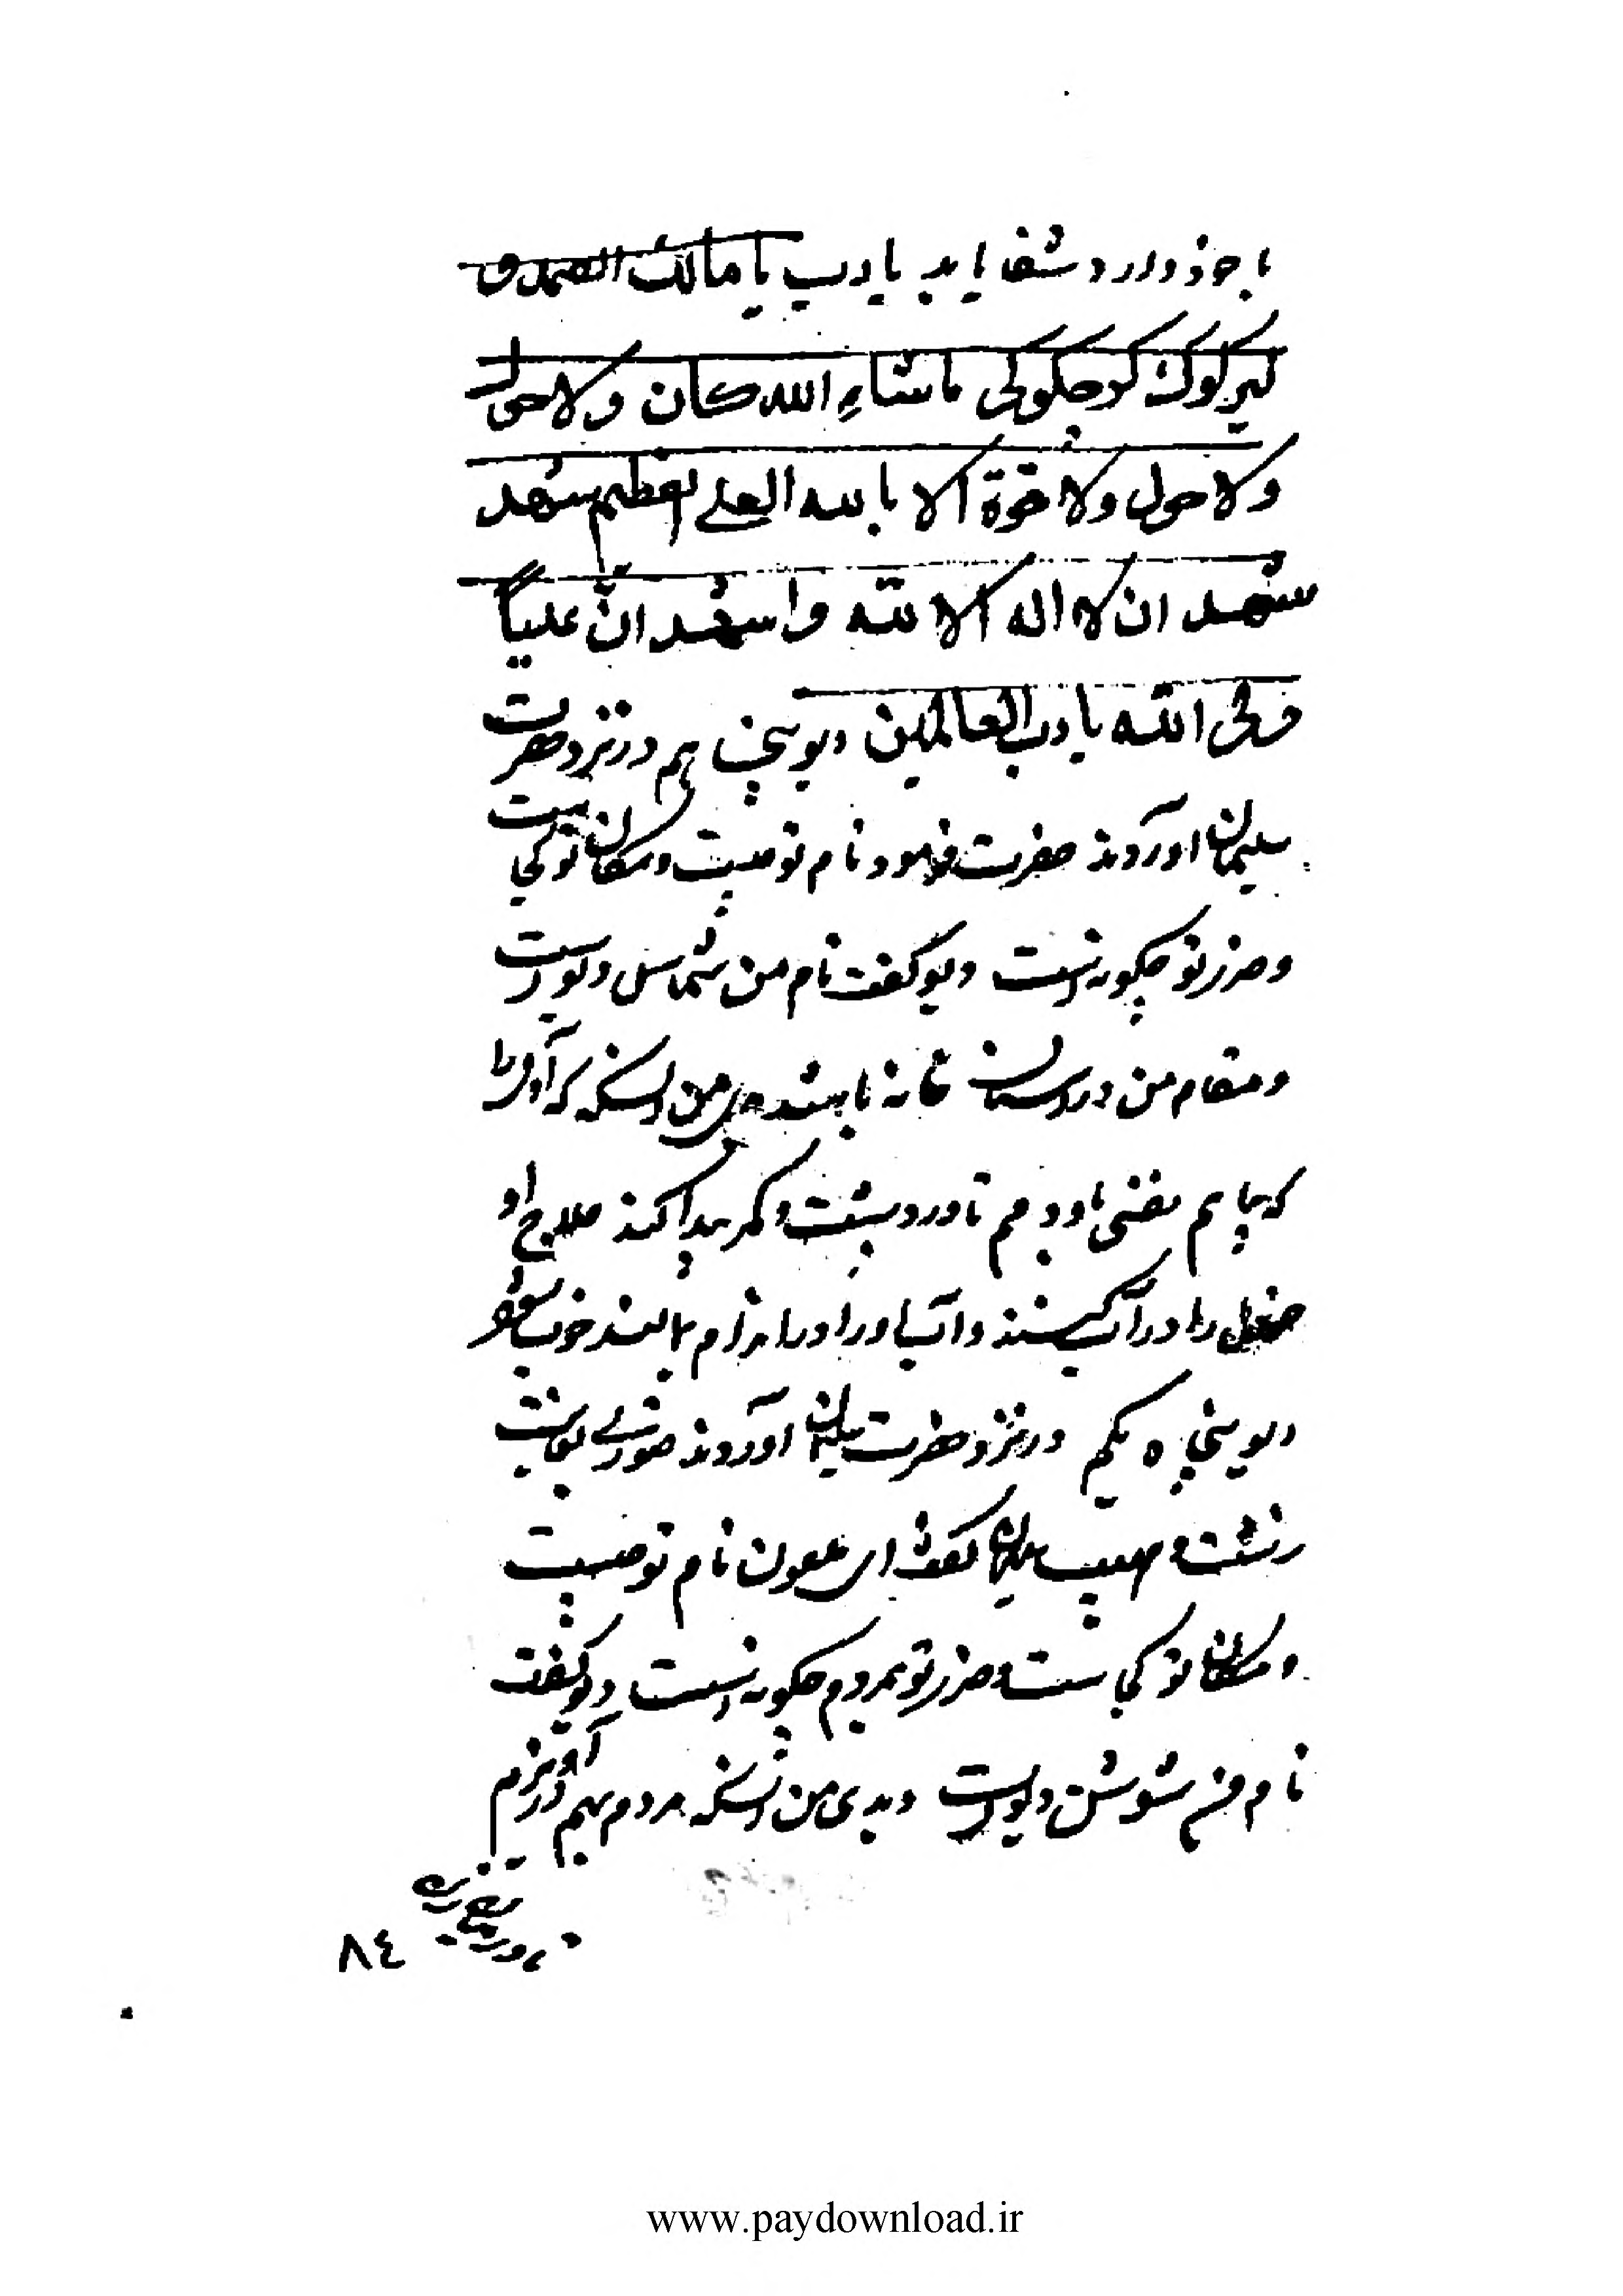 با خود دارد شفا یابد یا رب یا مالک الصمد ق
کیرکوک کرجکوکی ماشاء الله کان ولا حول
ولا حول ولا قوة الا بالله العلی العظیم شهد
شهد ان لا اله الا الله واشهد ان علیاً
ولی الله یا رب العالمین دیو پنجاهم در نزد حضرت
سلیمان آوردند حضرت فرمود نام تو چیست ومکان تو کجاست
وضرر تو چگونه است دیو گفت نام من شماسل دیو است
ومقام من در خانه باشد من آنست که آدمی را
که بیابم نفسی باو دمم تا درد پشت وکمر پیدا کند علاج او
را در آب وآب او را در اندام بمالند خوب شود
دیو پنجاه یکم در نزد حضرت سلیمان آوردند صورتی بغایت
زشت ومهیب سلیمان گفت ای ملعون نام تو چیست
ومکان تو کجاست وضرر تو بمردم چگونه است دیو گفت
نام من شوشن دیو است وبدی من آنست که مردم بهم
٨٤
www.paydownload.ir